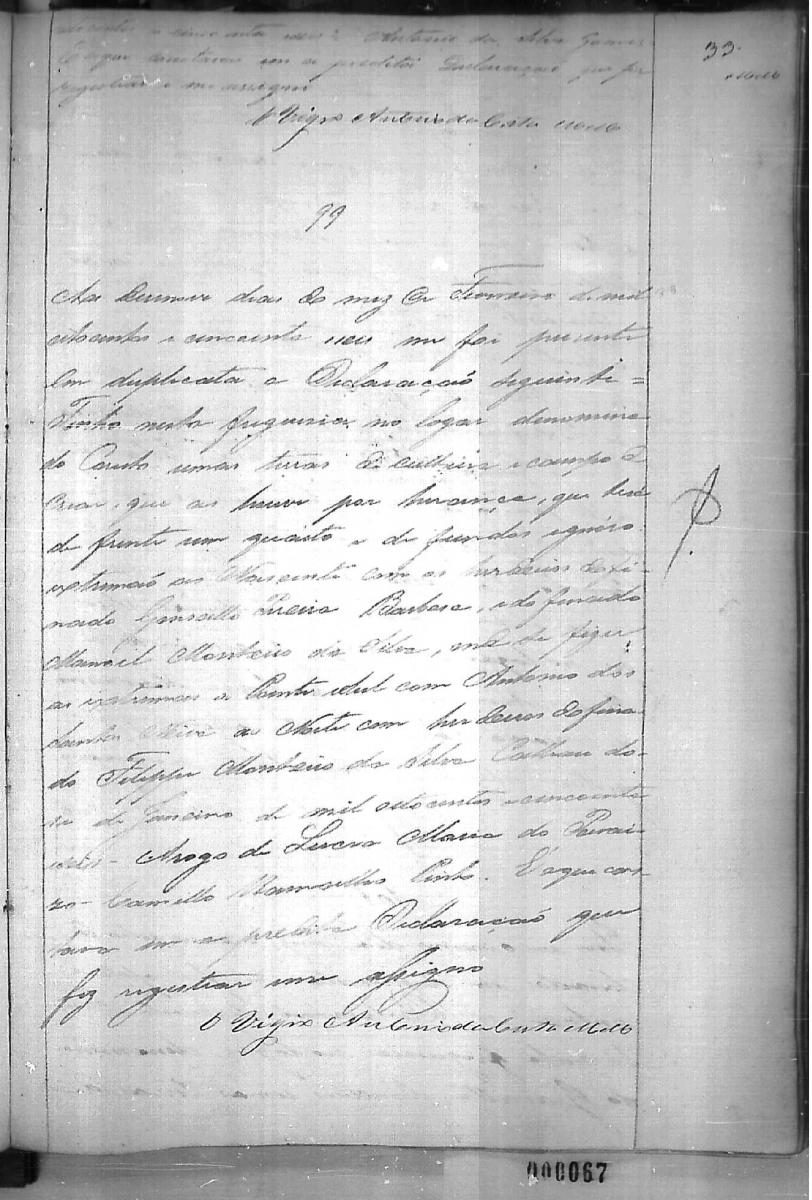 33
Mello
oitocentos e cincoenta e seis = Antonio da Silva Gomes
E o que constava em a predita Declaração que fiz
registrar e me assigno
O Vigrº Antonio da Costa Mello
99
Aos desenove dias do mez de Fevereiro de mil
oitocentos e cincoenta seis me foi presente
em duplicata a Declaração seguinte =
Tenho nesta freguesia no logar denomina-
do umas terras de cultura e campo de
criar, que as houve por herança, que terá
de frente um quarto e de fundos
extremão ao Nascente com os herdeiros do fi-
nado Gonsallo Pereira Barbosa, e do finado
Manoel Monteiro da Silva,
as extremas a Poente e Sul com Antonio dos
Santos ao Norte com herdeiros do fina-
do Filippe Monteiro da Silva do-
se de Janeiro de mil oitocentos e cincoenta
e seis - Arogo de Maria do Parai-
zo - Camello Pinto. E o que cons-
tava em a predita Declaração que
fiz registrar e me assigno
O Vigrº Antonio da Costa Mello
000067